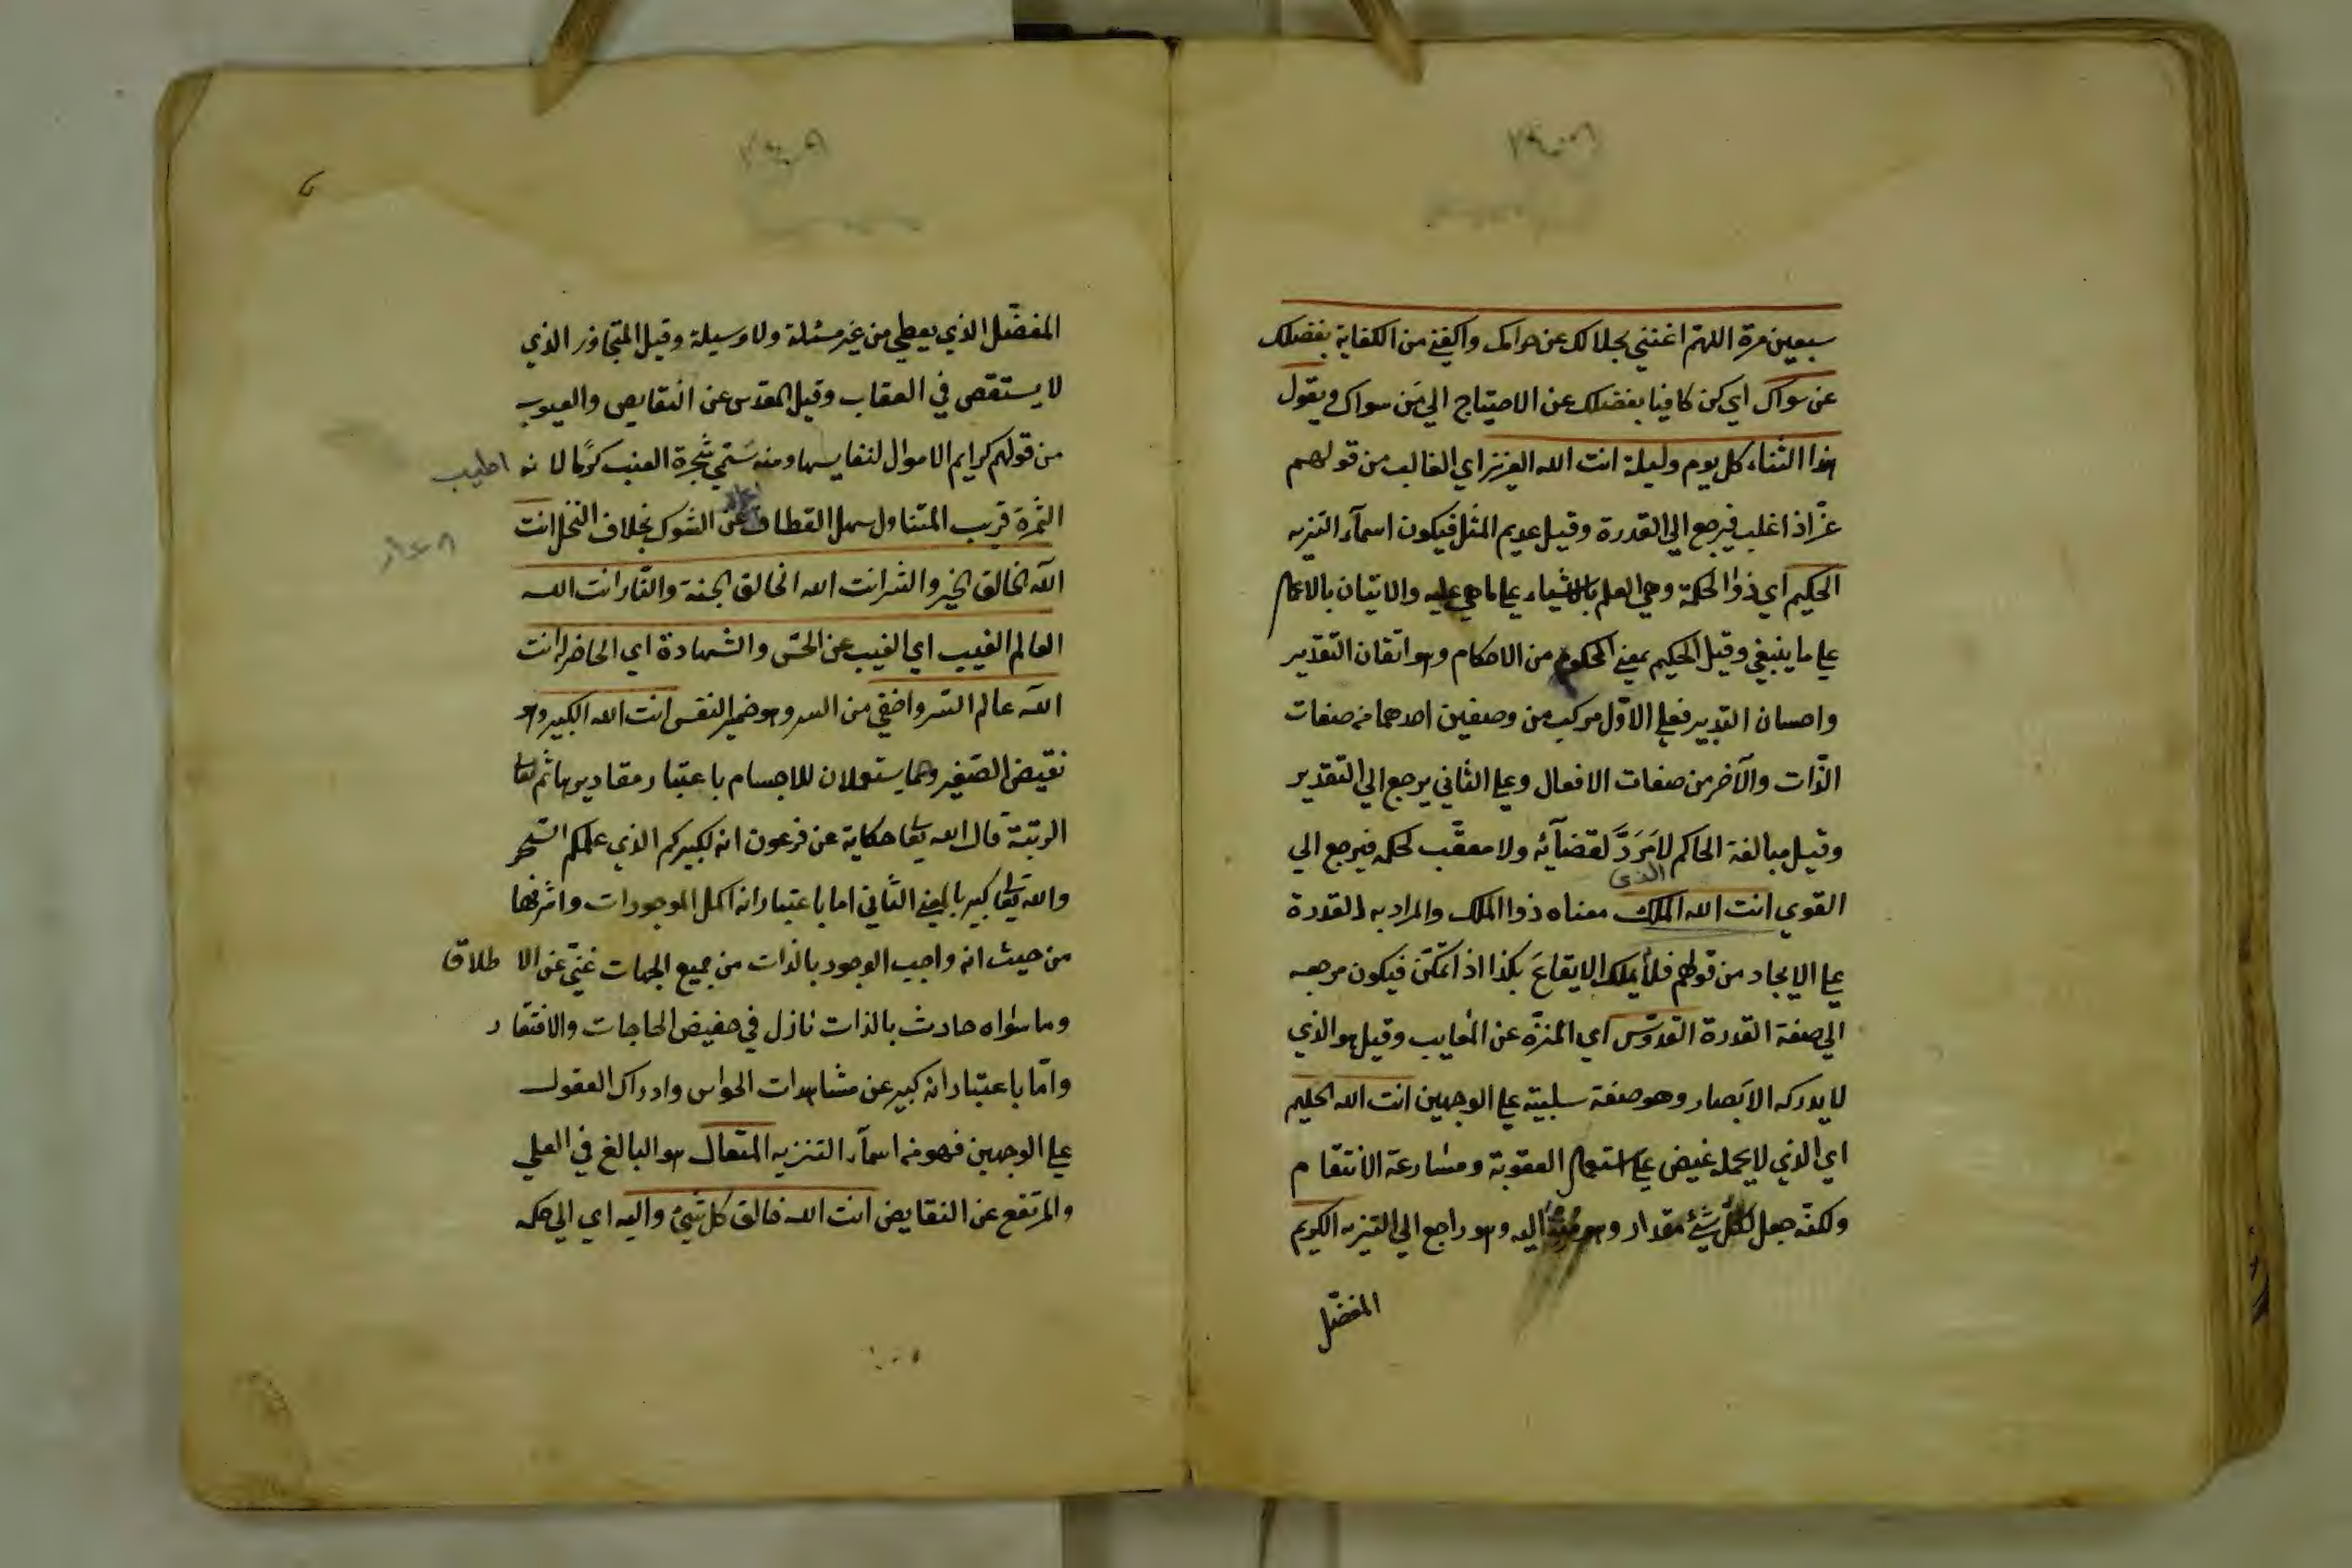 سبعين مرة اللهم اغنني بحلالك عن حرامك واكفني من الكفاية بفضلك
عن سواك اي كن كافيا بفضلك عن الاحتياج الي من سواك ويقول
هذا الثناء كل يوم وليلة انت الله العزيز اي الغالب من قولهم
عزّ اذا غلب فيرجع الي القدرة وقيل عديم المثل فيكون اسمآء التنزيه
الحكيم اي ذو الحكمة وهي العلم بالاشياء علي ما هي عليه والاتيان بالاعمال
علي ما ينبغي وقيل الحكيم بمعني المحكم من الاحكام وهو اتقان التقدير
واحسان التدبير فعلي الاول مركب من وصفين احدهما من صفات
الذّات والآخر من صفات الافعال وعلي الثاني يرجع الي التقدير
وقيل مبالغة الحاكم لا مَرَدَّ لقضآئه ولا معقّب لحكمه فيرجع الي
القوي انت الله الملك معناه ذو الملك والمراد به القدرة
الذي
علي الايجاد من قولهم فلان يملك الايقاعَ بكذا اذا تمكّن فيكون مرجعه
الي صفة القدرة القدوّس اي المنزّه عن المعايب وقيل هو الذي
لا يدركه الابصار وهو صفة سلبية علي الوجهين انت الله الحليم
اي الذي لا يحمله غيض علي استعجال العقوبة ومسارعة الانتقام
ولكنّه جعل لكلّ شيء مقدار وهو اليه وهو راجع الي التنزيه الكريم
المفضّل
المفضّل الذي يعطي من غير مسئلة ولا وسيلة وقيل المتجاوز الذي
لا يستقصي في العقاب وقيل المقدس عن النقايص والعيوب
من قولهم كرايم الاموال لنفايسها ومنه سَمّي شجرة العنب كرمًا لانه اطيب
الثمرة قريب المتناول سهل القطاف عن الشوك بخلاف النخل انت
الله الخالق الخير والشر انت الله الخالق الجنة والنّار انت الله
العالم الغيب اي الغيب عن الحسّ والشهادة اي الحاضر له انت
الله عالم السّر واخفي من السر وهو ضمير النفس انت الله الكبير وهو
نقيض الصّغير وهما يستعملان للاجسام باعتبار مقاديرها ثم لعالي
الرتبة قال الله تعالي حكاية عن فرعون انه لكبيركم الذي علمكم السّحر
والله تعالي كبير بالمعني الثاني اما باعتبار انه اكمل الموجودات واشرفها
من حيث انه واجب الوجود بالذات من جميع الجهات غنيّ عن الاطلاق
وما سواه حادث بالذات نازل في حضيض الحاجات والافتقار
وامّا باعتبار انه كبير عن مشاهدات الحواس وادراك العقول
علي الوجهين فهو من اسمآء التنزيه المتعال هو البالغ في العلي
والمرتفع عن النقايض انت الله خالق كل شيء واليه اي الي حكمه